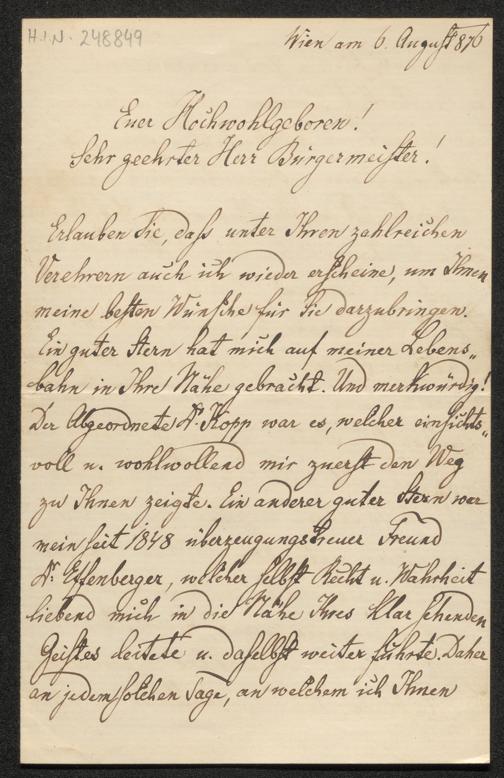 H.I.N. 248849
Wien am 6. August 1876
Euer Hochwohlgeboren!
Sehr geehrter Herr Bürgermeister!
Erlauben Sie, daß unter Ihren zahlreichen
Verehrern auch ich wieder erscheine, um Ihnen
meine besten Wünsche für Sie darzubringen.
Ein guter Stern hat mich auf meiner Lebens„
bahn in Ihre Nähe gebracht. Und merkwürdig!
Der Abgeordnete Dr. Kopp war es, welcher einsichts„
voll u. wohlwollend mir zuerst den Weg
zu Ihnen zeigte. Ein anderer guter Stern war
mein seit 1848 überzeugungstreuer Freund
Dr. Effenberger, welcher selbst Recht u. Wahrheit
liebend mich in die Nähe Ihres klar sehenden
Geistes leitete u. daselbst weiter führte. Daher
an jedem solchen Tage, an welchem ich Ihnen